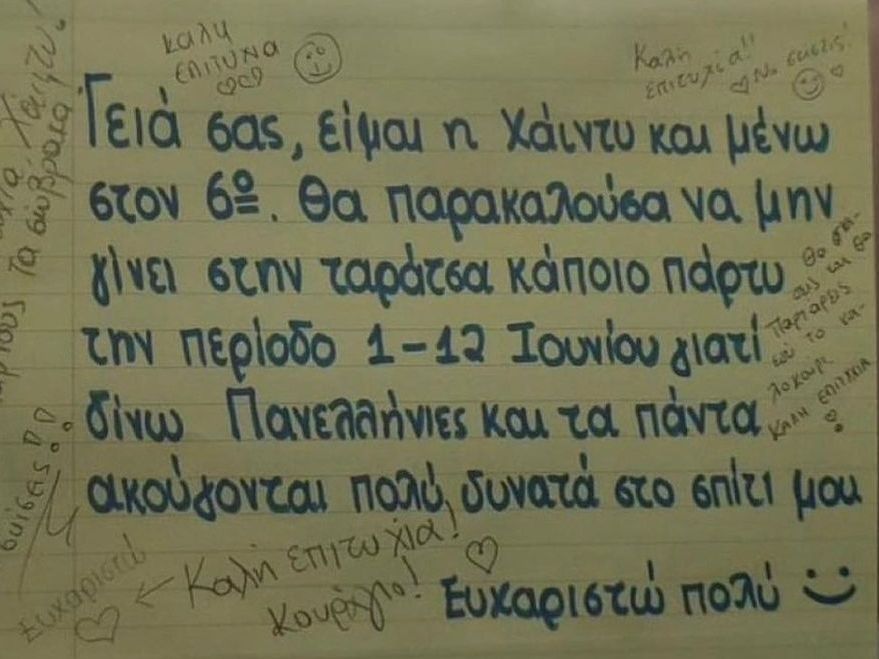 καλη
επιτυχια
Καλή
επιτυχία!!
Να σκίσεις!
Γειά σας, είμαι η Χάιντυ και μένω
στον 6º. Θα παρακαλούσα να μην
γίνει στην ταράτσα κάποιο πάρτυ
την περίοδο 1-12 Ιουνίου γιατί
δίνω Πανελλήνιες και τα πάντα
ακούγονται πολύ δυνατά στο σπίτι μου
Ευχαριστώ πολύ
Θα
και θα
παρταρεις
το κα-
λοκαιρι
ΚΑΛΗ ΕΠΙΤΥΧΙΑ
Καλή επιτυχία!
Κουράγιο!
Ευχαριστώ
Χάιντυ
τους τα σώβρακα
σκίσεις!!